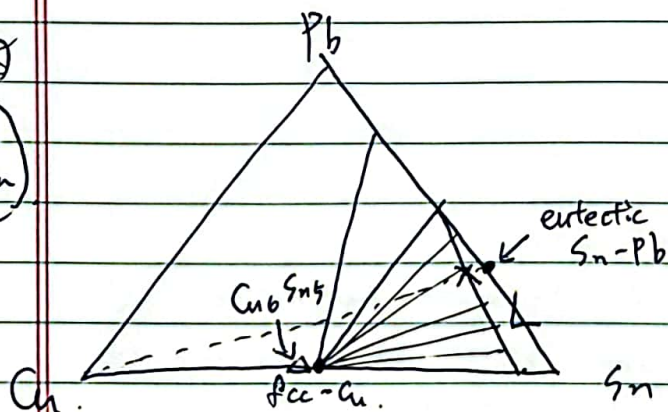 Pb
n
eutectic
Sn-Pb
Cu6 Sn5
L
Cu.
fcc-Cu.
Sn